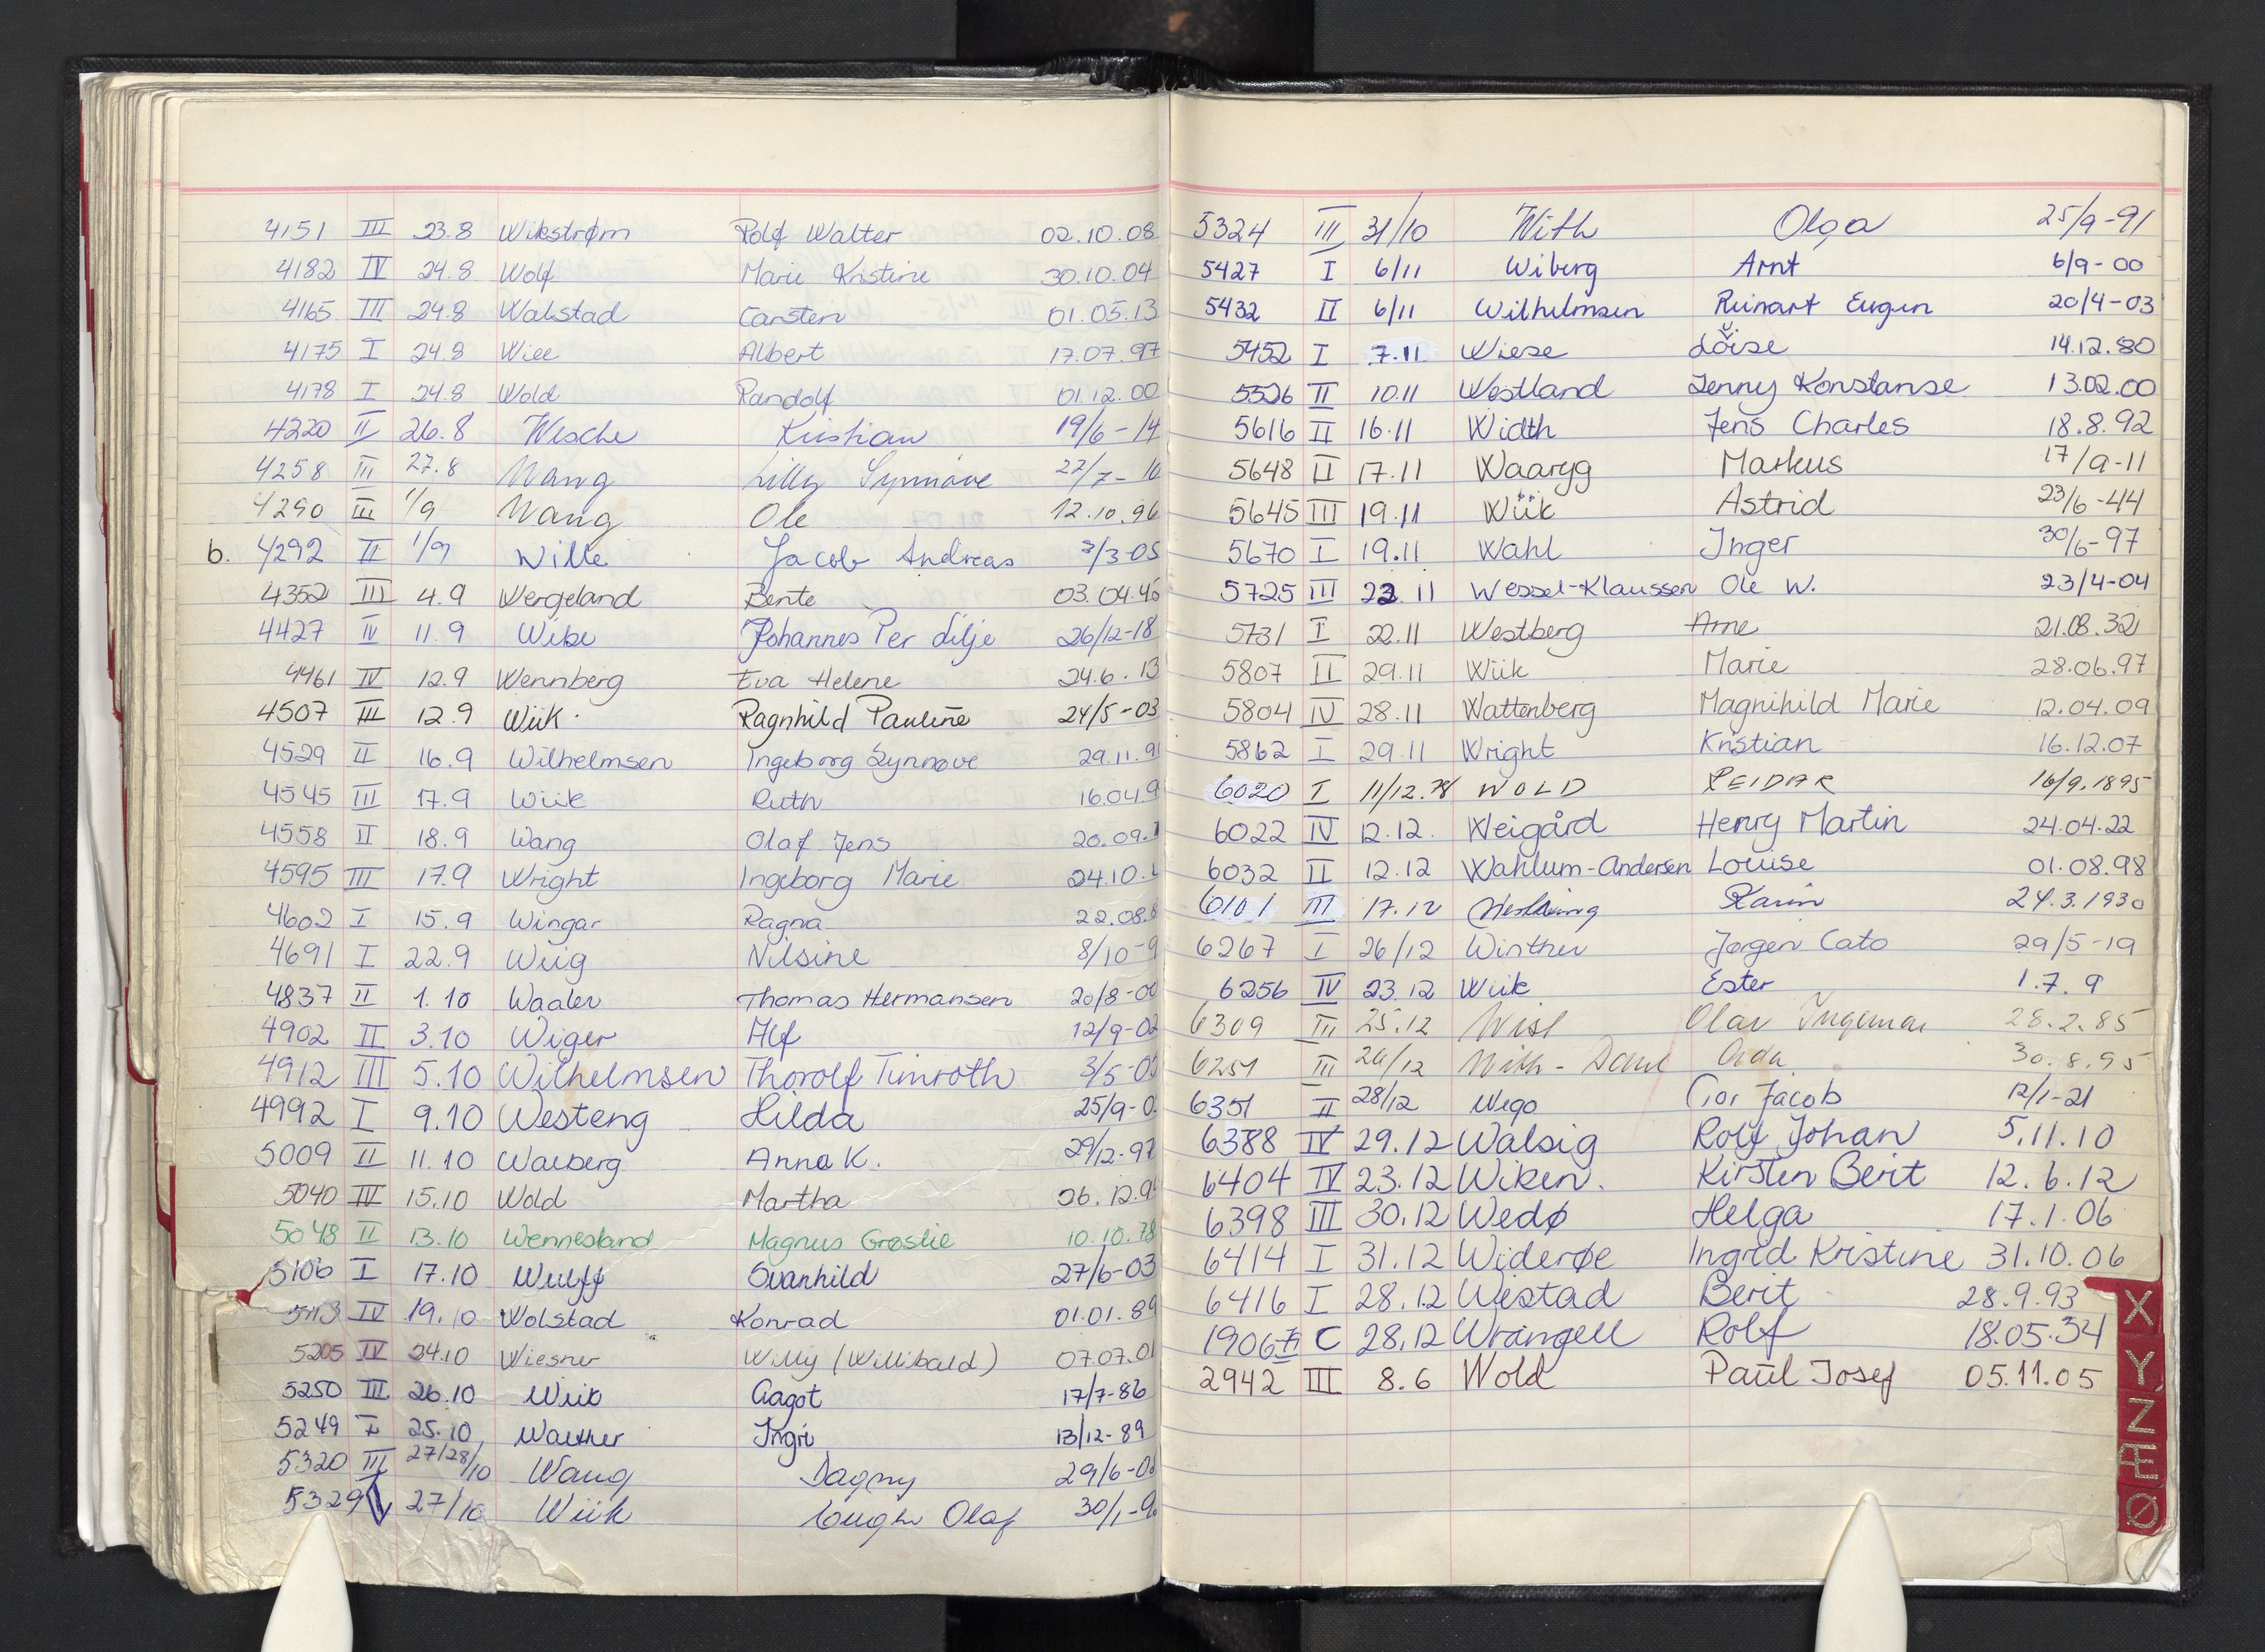 4151 III 23.8 Wikstrøm Rolf Walter 02.10.08
4182 IV 24.8 Wolf Marie Kristine 30.10.04
4165 III 24.8 Walstad Carsten 01.05.13
4175 I 24.8 Albert 17.07.97
4178 I 24.8 Wold Randolf 01.12.00
4220 II 26.8 Wesche Kristian 19/6-14
4258 III 27.8 Wang Lilly Synnøve 22/7-10
4290 III 1/9 Wang Ole 12.10.96
b. 4292 II 1/9 Wille Jacob Andreas 3/3-05
4352 III 4.9 Wergeland Bente 03.04.45
4427 IV 11.9 Wibe Johannes Per Lilje 26/12-18
4461 IV 12.9 Wennberg Eva Helene 24.6.13
4507 III 12.9 Wiik Ragnhild Pauline 24/5-03
4529 II 16.9 Wilhelmsen Ingeborg Synnøve 29.11.91
4545 III 17.9 Wiik Ruth 16.04.9
4558 II 18.9 Wang Olaf Jens 20.09.
4595 III 17.9 Wright Ingeborg Marie 24.10.
4602 I 15.9 Wingar Ragna 22.08.8
4691 I 22.9 Wiig Nilsine 8/10-9
4837 II 1.10 Waaler Thomas Hermansen 20/8-00
4902 II 3.10 Wiger Alf 12/9-02
4912 III 5.10 Wilhelmsen Thorolf Timroth 3/5-05
4992 I 9.10 Westeng Hilda 25/9-0
5009 II 11.10 Walberg Anna K. 29/12-97
5040 IV 15.10 Wold Martha 06.12.9
5048 II 13.10 Wennesland Magnus Grøslie 10.10.78
5106 I 17.10 Wulff Svanhild 27/6-03
IV 19.10 Wolstad Konrad 01.01.89
5205 IV 24.10 Wiesner Willy (Willibald) 07.07.01
5250 III 26.10 Wiik Aagot 17/7-86
5249 I 25.10 Walther Ingri 13/12-89
5320 III 27/28/10 Wang Dagny 29/6-0
5329 27/10 Wiik Olaf 30/1-9
5324 III 31/10 With Olga 25/9-91
5427 I 6/11 Wiberg Arnt 6/9-00
5432 II 6/11 Wilhelmsen Reinart Eugen 20/4-03
5452 I 7.11 Wiese 14.12.80
5526 II 10.11 Westland Jenny Konstanse 13.02.00
5616 II 16.11 Width Jens Charles 18.8.92
5648 II 17.11 Waaryg Markus 17/9-11
5645 III 19.11 Wiik Astrid 23/6-44
5670 I 19.11 Wahl Inger 30/6-97
5725 III 22.11 Wessel-Klaussen Ole W. 23/4-04
5731 I 22.11 Westberg Arne 21.08.32
5807 II 29.11 Wiik Marie 28.06.97
5804 IV 28.11 Wattenberg Magnihild Marie 12.04.09
5862 I 29.11 Wright Kristian 16.12.07
6020 I 11/12.78 WOLD REIDAR 16/9.1895
6022 IV 12.12. Weigård Henry Martin 24.04.22
6032 II 12.12 Wahlum-Andersen Louise 01.08.98
6101 III 17.12 Karin 24.3.1930
6267 I 26/12 Winther Jørgen Cato 29/5-19
6256 IV 23.12 Wiik Ester 1.7.9
6309 III 25.12 Olav Ingemar 28.2.85
6251 III 26/12 With- 30.8.95
6351 II 28/12 Wego Tor Jacob 12/1-21
6388 IV 29.12 Walsig Rolf Johan 5.11.10
6404 IV 23.12 Wiken. Kirsten Berit 12.6.12
6398 III 30.12 Wedø Helga 17.1.06
6414 I 31.12 Widerøe Ingrid Kristine 31.10.06
6416 I 28.12 Westad Berit 28.9.93
1906 C 28.12 Wrangell Rolf 18.05.34
2942 III 8.6 Wold Paul Josef 05.11.05
X
Y
Z
Æ
Ø